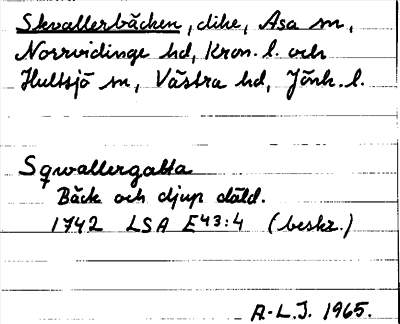 Skvallerbäcken, dike, Asa sn,
Norrvidinge hd, Kron. l. och
Hultsjö sn, Västra hd, Jönk. l.
Sqwallergatta
Bäck och djup däld.
1742 LSA E43:4 (beskr.)
A-L.J. 1965.